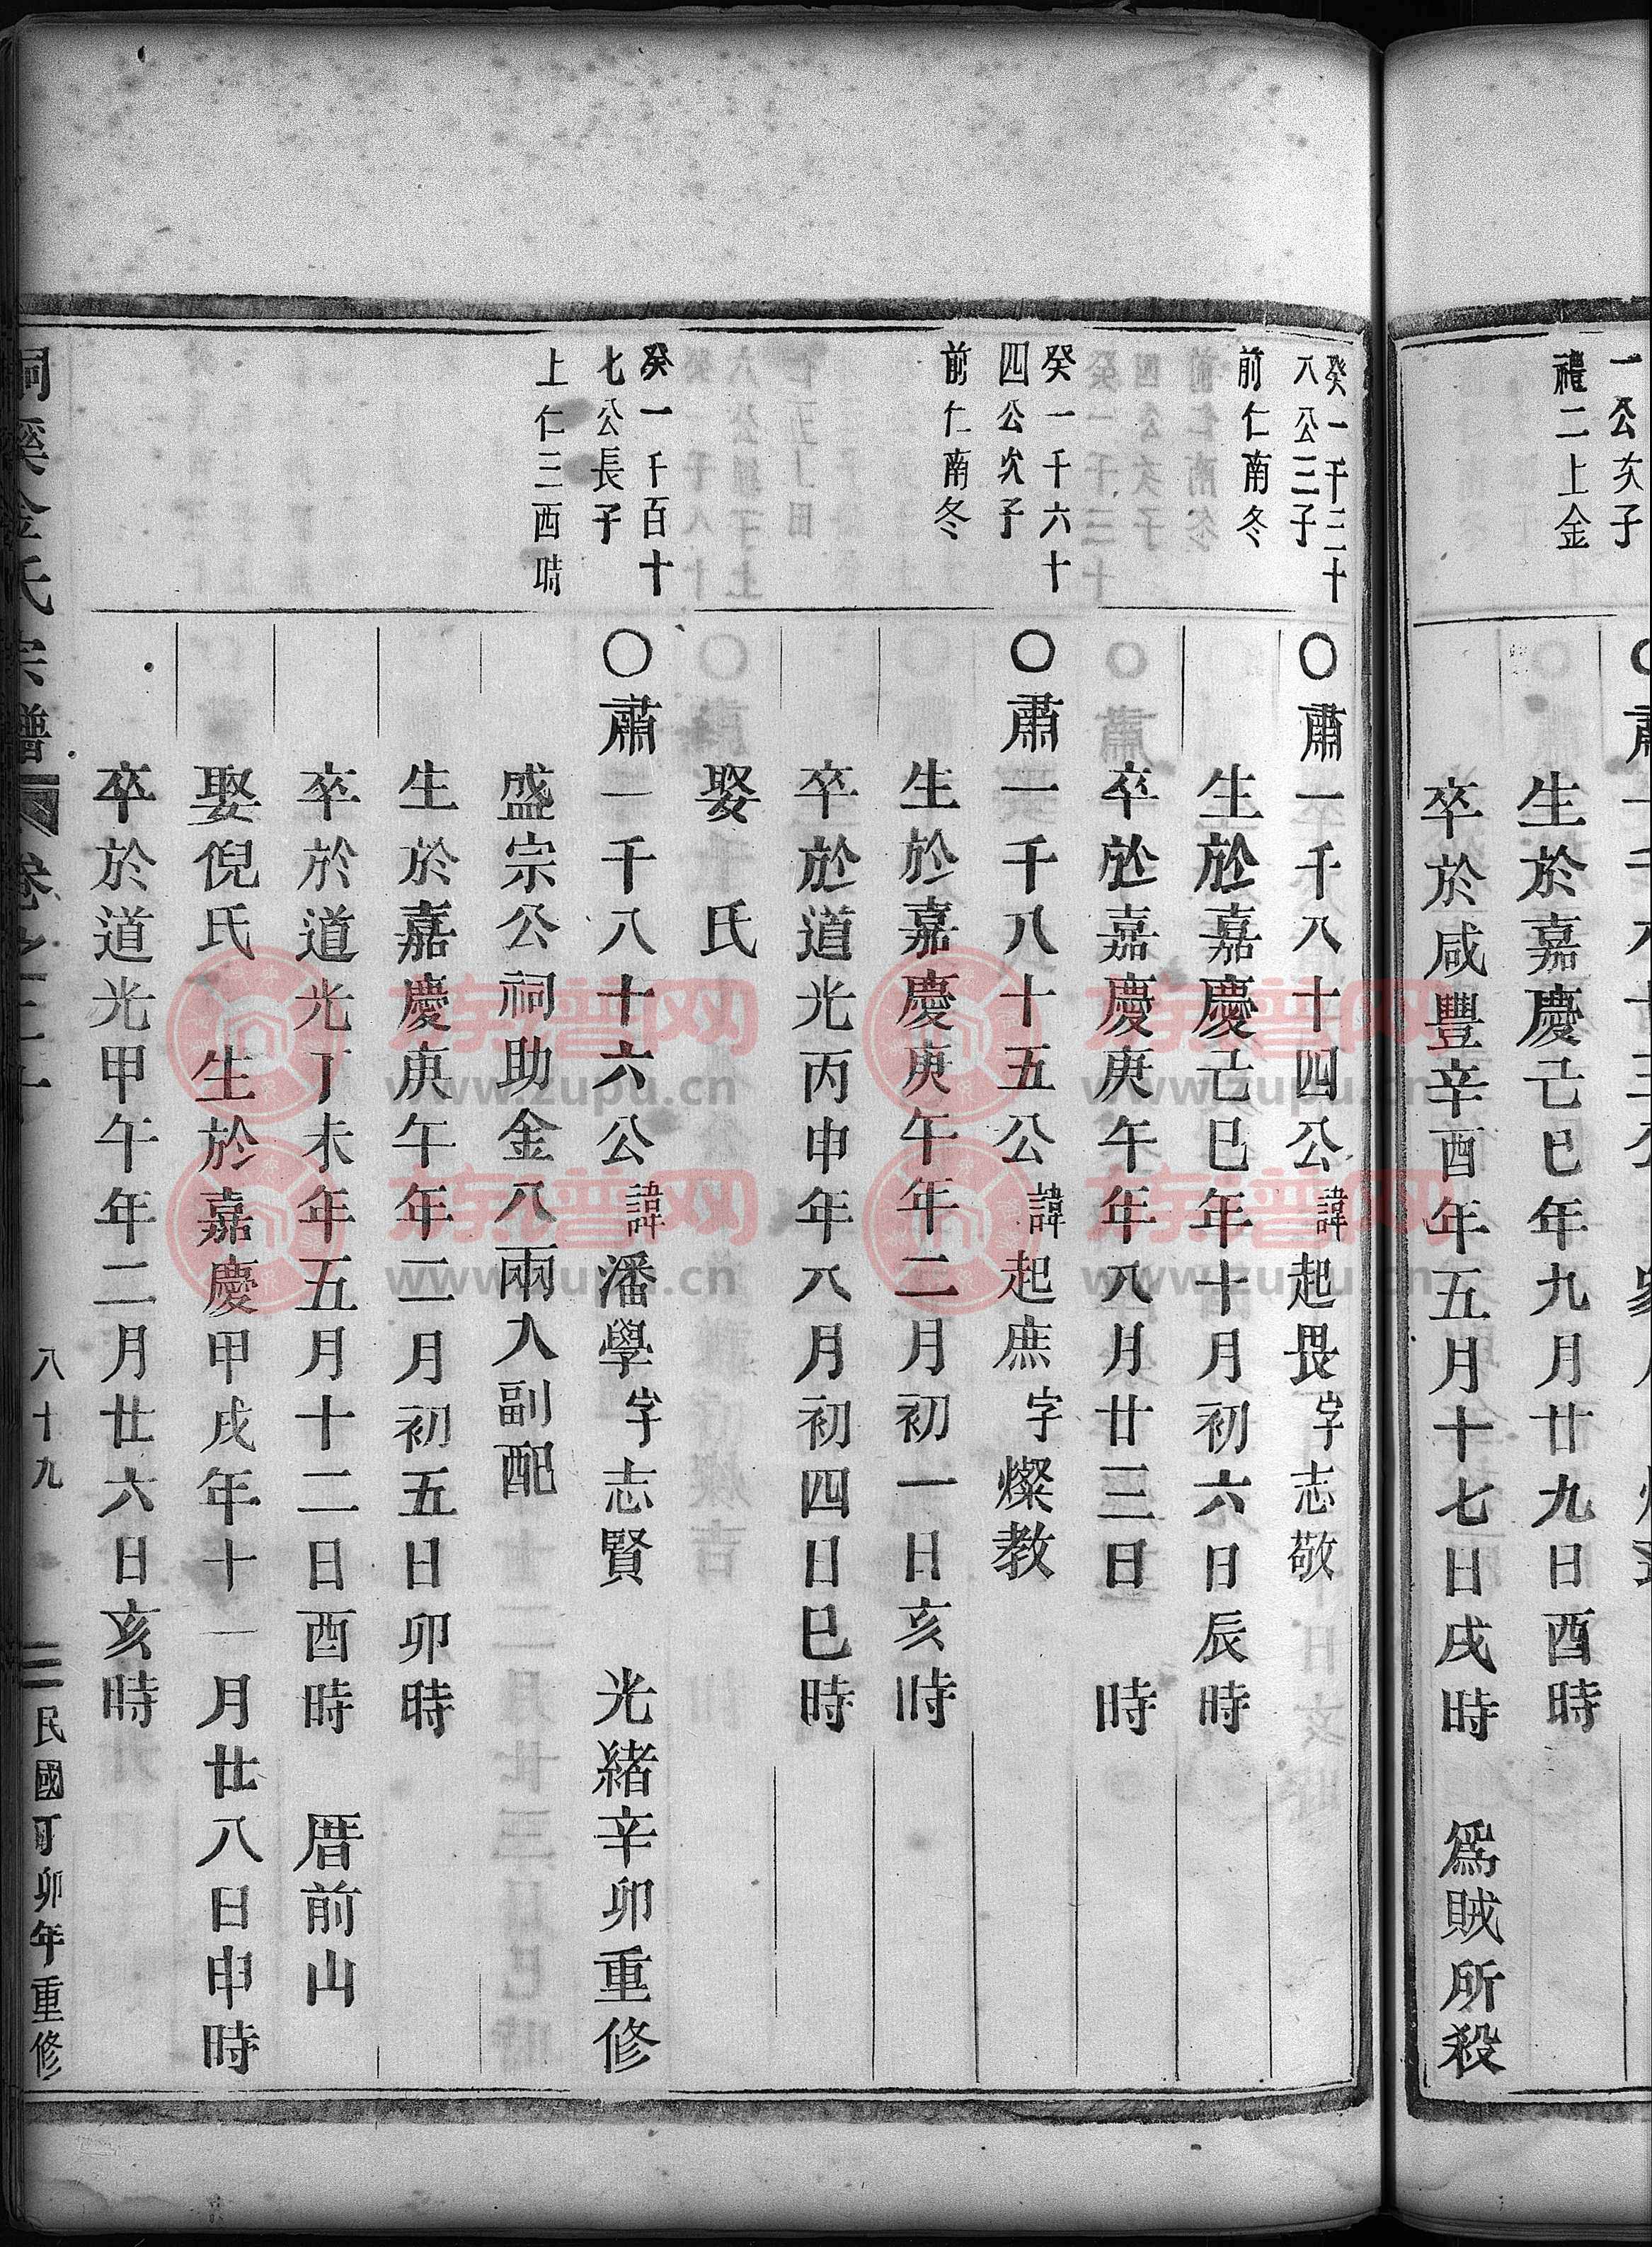 一公次子
禮二上金
生於嘉慶己巳年九月廿九日酉時
卒於咸豐辛酉年五月十七日戌時 爲賊所殺
癸一千三十
八公三子
前仁南冬
○肅一千八十四公諱起畏字志敬
生於嘉慶己巳年十月初六日辰時
卒於嘉慶庚午年八月廿三日 時
癸一千六十
四公次子
前仁南冬
○肅一千八十五公諱起庶字燦教
生於嘉慶庚午年二月初一日亥時
卒於道光丙申年八月初四日巳時
娶 氏
癸一千百十
七公長子
上仁三西啨
○肅一千八十六公諱潘學字志賢 光緒辛卯重修
盛宗公祠助金八兩入副配
生於嘉慶庚午年二月初五日卯時
卒於道光丁未年五月十二日酉時 厝前山
娶倪氏 生於嘉慶甲戌年十一月廿八日申時
卒於道光甲午年二月廿六日亥時
金氏宗譜 卷之
八十九
民國丁卯年重修
族谱网
www.zupu.cn
族谱网
www.zupu.cn
族谱网
www.zupu.cn
族谱网
www.zupu.cn